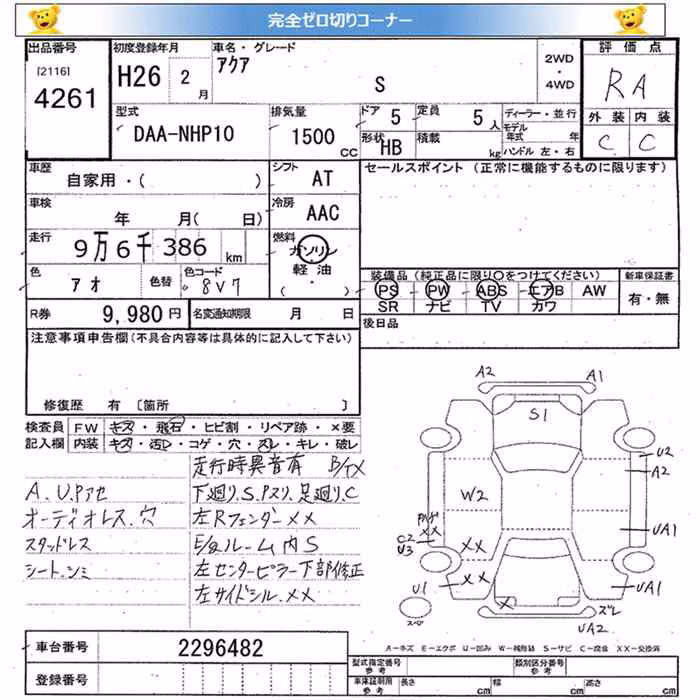 完全ゼロ切りコーナー
出品番号
[2116]
4261
初度登録年月
H26 2 月
車名・グレード
アクア
S
2WD
・
4WD
評価点
RA
外装 内装
C C
型式
DAA-NHP10
排気量
1500 CC
ドア 5
定員 5 人
形状 HB
積載 kg
ディーラー・並行
モデル年式 年
ハンドル 左・右
車歴
自家用・( )
シフト
AT
車検
年 月( 日)
冷房
AAC
走行
9万6千386 km
燃料
ガソリン
軽油
( ・ )
色
アオ
色替
色コード
8V7
R券 9,980 円
名変通知期限 月 日
セールスポイント (正常に機能するものに限ります)
装備品 (純正品に限り○をつけてください)
PS PW ABS エアB AW
SR ナビ TV カワ
新車保証書
有・無
後日品
注意事項申告欄(不具合内容等は具体的に記入して下さい)
修復歴 有 [箇所 ]
検査員記入欄
FW キズ・飛石・ヒビ割・リペア跡・×要
内装 キズ・汚レ・コゲ・穴・スレ・キレ・破レ
走行時異音有
A.U.Pアセ
下廻リ.S.Pスリ,足廻リ.C
オーディオレス.穴
左Rフェンダー××
スタッドレス
E/gルーム内S
シート.シミ
左センターピラー下部修正
左サイドシル.××
A2
A1
S1
U2
A2
W2
××
C2
U3
UA1
××
××
U1
UA1
スペア
×
ズレ
UA2
A=キズ E=エクボ U=凹み W=補修跡 S=サビ C=腐食 XX=交換済
車台番号
2296482
登録番号
型式指定番号
参考
類別区分番号
参考
車庫証明用
参考
長さ cm 幅 cm 高さ cm